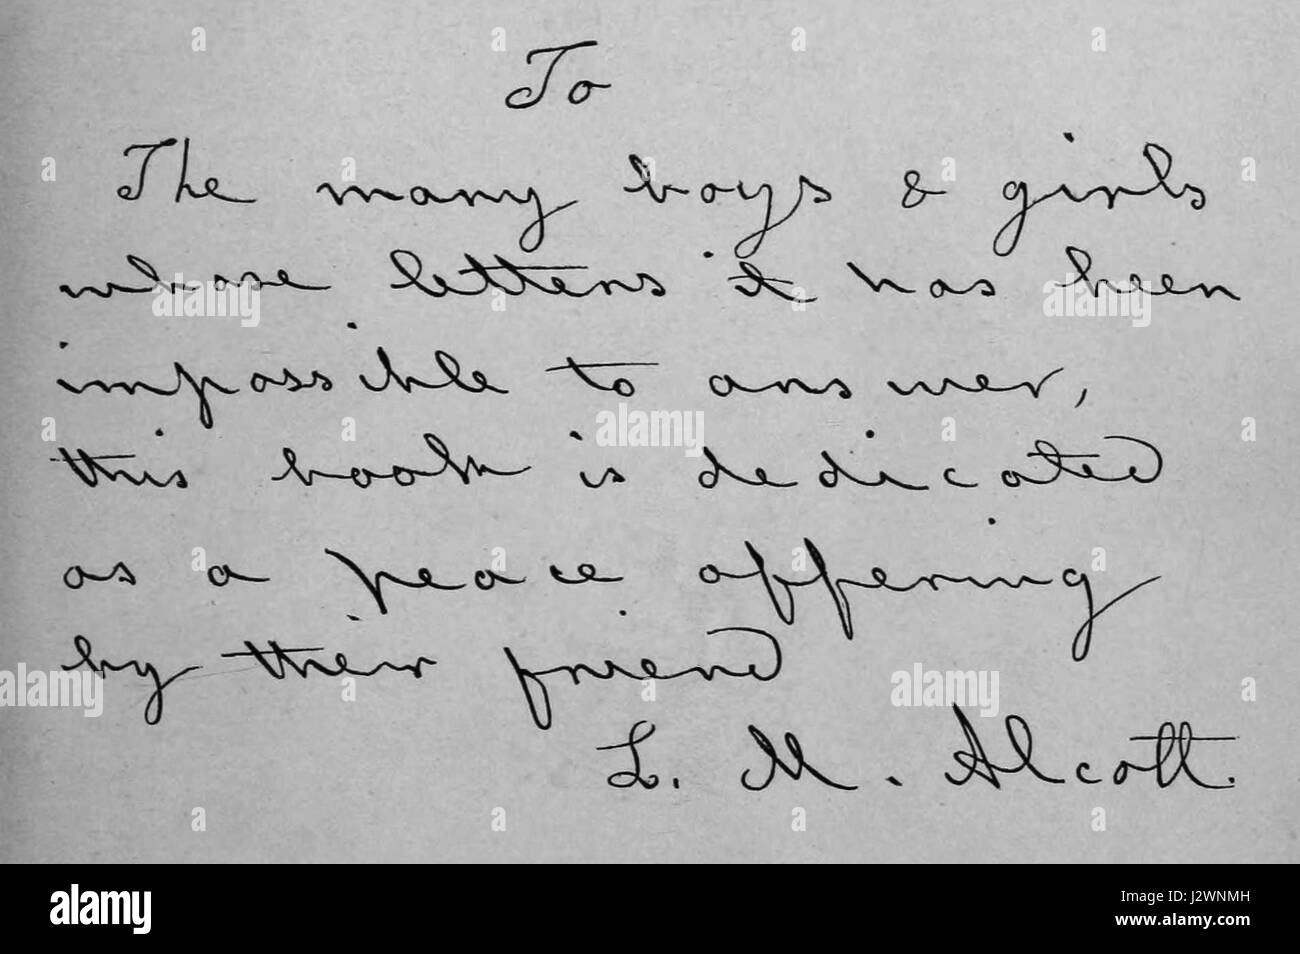 To
The many boys & girls
whose letters it has been
impossible to answer,
this book is dedicated
as a peace offering
by their friend
L. M. Alcott.
alamy
Image ID: J2WNMH
www.alamy.com